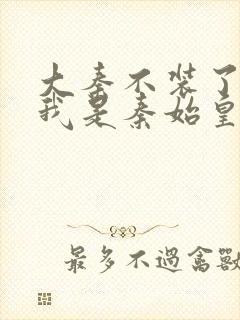 大秦不装了
我是秦始皇
最多不過禽獸